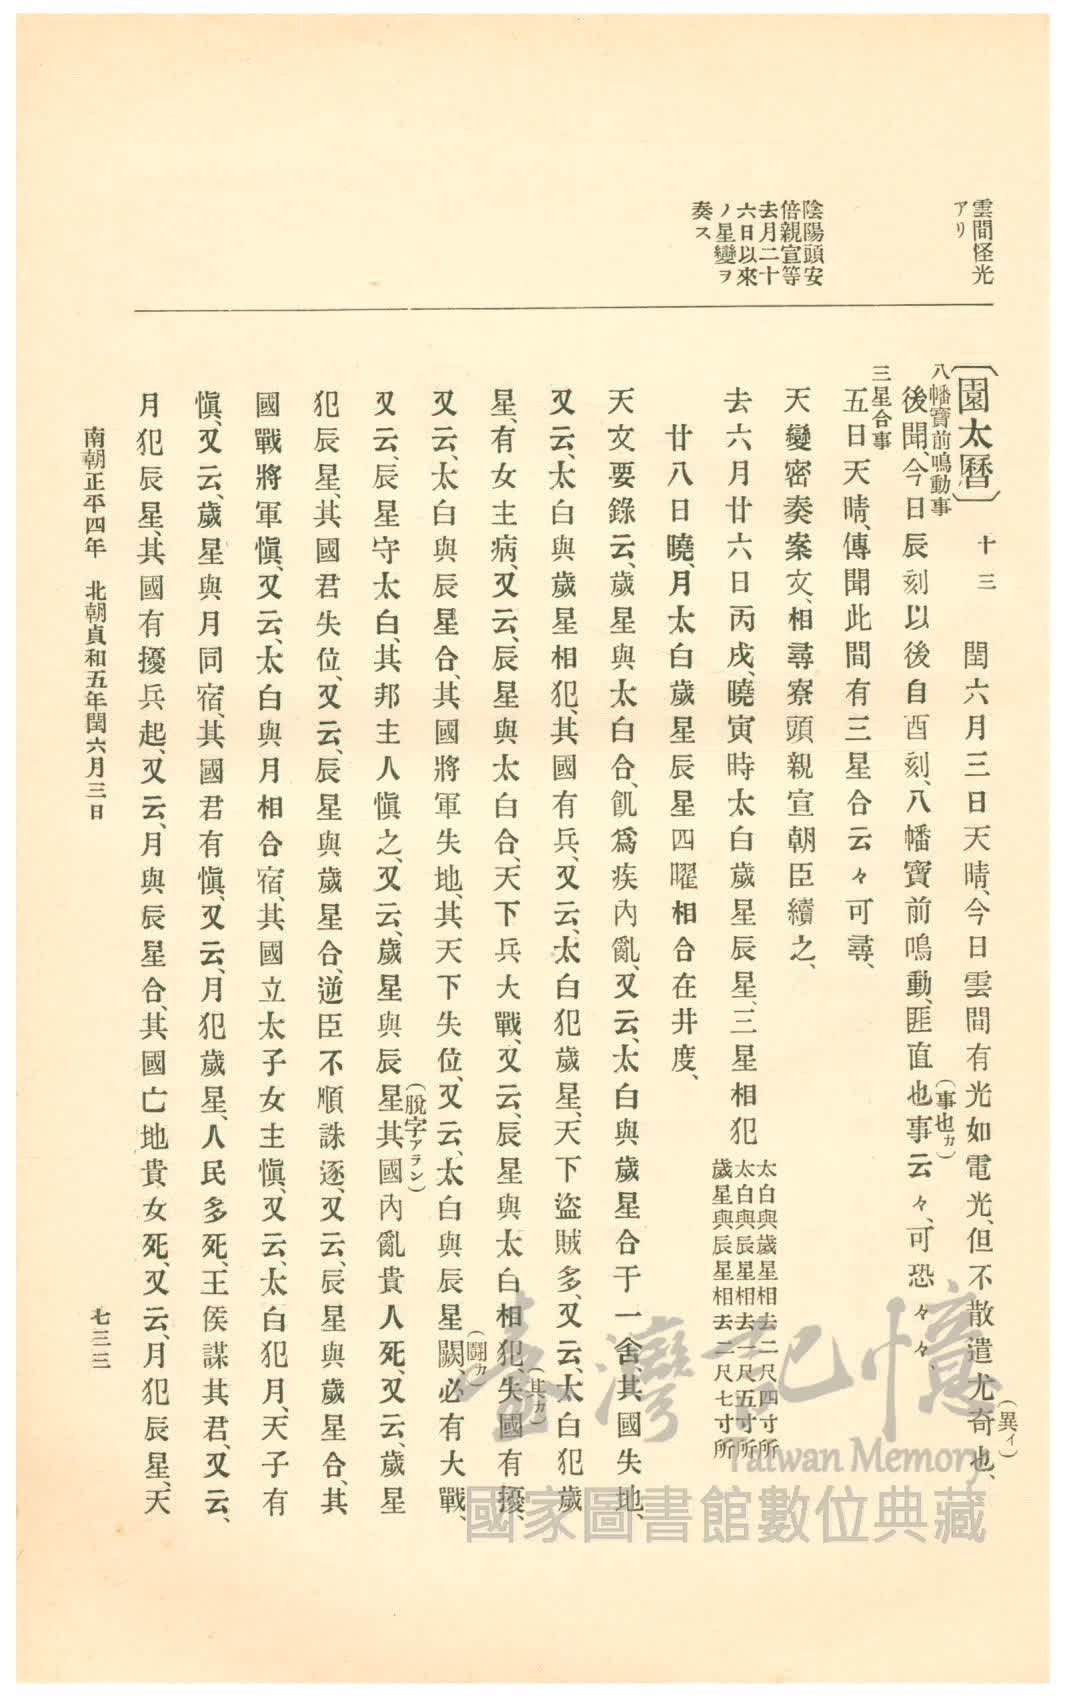 雲間怪光
アリ
陰陽頭安
倍親宣等
去月二十
六日以來
ノ星變ヲ
奏ス
〔園太曆〕 十三 閏六月三日天晴、今日雲間有光如電光、但不散遣尤奇也、
(異イ)
八幡寶前鳴動事
後聞、今日辰刻以後自酉刻、八幡寶前鳴動、匪直也事云々、可恐々々、
(事也カ)
三星合事
五日天晴、傳聞此間有三星合云々可尋、
天變密奏案文、相尋寮頭親宣朝臣續之、
去六月廿六日丙戌、曉寅時太白歲星辰星、三星相犯
太白與歲星相去二尺四寸所
太白與辰星相去一尺五寸所
歲星與辰星相去二尺七寸所
廿八日曉、月太白歲星辰星四曜相合在井度、
天文要錄云、歲星與太白合、飢爲疾內亂、又云、太白與歲星合于一舍、其國失地、
又云、太白與歲星相犯、其國有兵、又云、太白犯歲星、天下盜賊多、又云、太白犯歲
星、有女主病、又云、辰星與太白合、天下兵大戰、又云、辰星與太白相犯、失國有擾、
(其カ)
又云、太白與辰星合、其國將軍失地、其天下失位、又云、太白與辰星闕、必有大戰、
(鬪カ)
又云、辰星守太白、其邦主人愼之、又云、歲星與辰星其國內亂貴人死、又云、歲星
(脫字アラン)
犯辰星、其國君失位、又云、辰星與歲星合、逆臣不順誅逐、又云、辰星與歲星合、其
國戰將軍愼、又云、太白與月相合宿、其國立太子女主愼、又云、太白犯月、天子有
愼、又云、歲星與月同宿、其國君有愼、又云、月犯歲星、人民多死、王侯謀其君、又云、
月犯辰星、其國有擾兵起、又云、月與辰星合、其國亡地貴女死、又云、月犯辰星、天
南朝正平四年 北朝貞和五年閏六月三日
七三三
臺灣記憶
Taiwan Memory
國家圖書館數位典藏